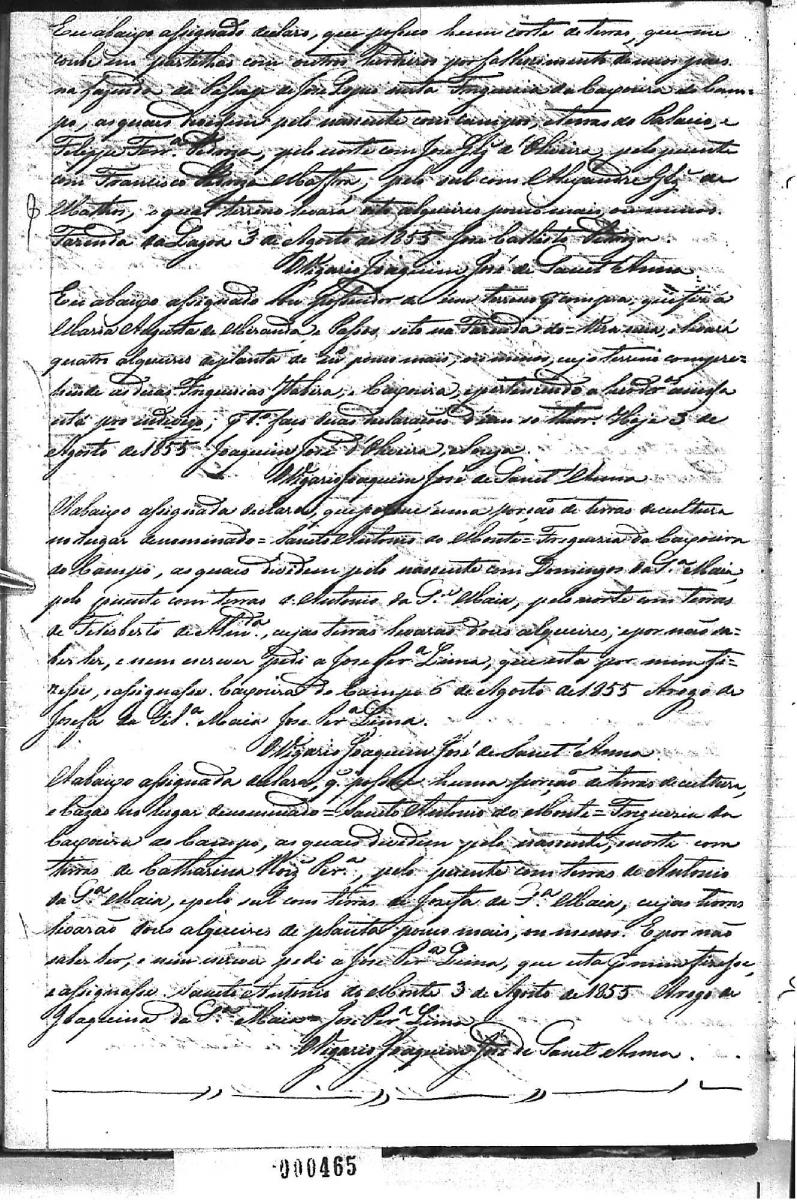 Eu abaixo assignado declaro, que possuo hum corte de terras, que me
coube em partilhas com outros herdeiros por fallecimento de meus pais
na fazenda de José Lopes nesta Freguezia da Caxoeira do Cam-
po, as quaes dividem pelo nascente com campos, e terras do Palacio, e
Felippe Ferr.ª Pedroza, pelo norte com José Glz' de Oliveira, pelo poente
com Francisco Pedroza, pelo sul com Alexandre Glz' de
Mattos, o qual terreno levará oito alqueires pouco mais, ou menos.
Fazenda da Lagoa 3 de Agosto de 1855 José Calixto Pedroza.
O Vigario Joaquim José de Sanct'Anna
Eu abaixo assignado sou possuidor de um terreno p.r compra, que fiz á
Maria Augusta de Miranda e Passos, sito na Fazenda do = , e levará
quatro alqueires de planta de pouco mais, ou menos, cujo terreno compre-
hende as duas Freguezias Itabira, e Caxoeira, e pertencendo a
está pro indiviso, p.r t.º faço duas declarações d'um só theor. Hoje 3 de
Agosto de 1855 Joaquim José d'Oliveira, e Souza.
O Vigario Joaquim José de Sanct'Anna
A abaixo assignada declara, que possue uma porção de terras de cultura
no lugar denominado = Sancto Antonio do Monte = Freguezia da Caxoeira
do Campo, as quaes dividem pelo nascente com Domingos da S.ª Maia,
pelo poente com terras de Antonio da S.ª Maia, pelo norte com terras
de Felisberto de Alm.da, cujas terras levarão dous alqueires; e por não sa-
ber ler, e nem escrever pedi a José Per.ª Lima, que esta por mim fi-
zesse, e assignasse. Caxoeira do Campo 6 de Agosto de 1855 Arogo de
Josefa da Maia José Per.ª Lima.
O Vigario Joaquim José de Sanct'Anna.
A abaixo assignada declara, q.' possue huma porção de terras de cultura,
no lugar denominado = Sancto Antonio do Monte = Freguezia da
Caxoeira do Campo, as quaes dividem pelo nascente, e norte com
terras de Catharina Roiz Per.ª, pelo poente com terras de Antonio
da S.ª Maia, e pelo sul com terras de Josefa da S.ª Maia, cujas terras
levarão dous alqueires de planta pouco mais, ou menos. E por não
saber ler, e nem escrever pedi a José Per.ª Lima, que esta p.r mim fizesse,
e assignasse. Sancto Antonio do Monte 3 de Agosto de 1855 Arogo de
Joaquina da S.ª Maia José Per.ª Lima
O Vigario Joaquim José de Sanct'Anna.
000465